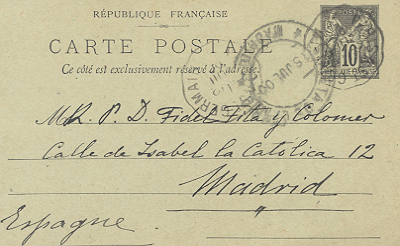 RÉPUBLIQUE FRANÇAISE
CARTE POSTALE
Ce côté est exclusivement réservé à l'adresse.
10
M.R. P. D. Fidel Fita y Colomer
Calle de Isabel la Católica 12
Madrid
"
Espagne.